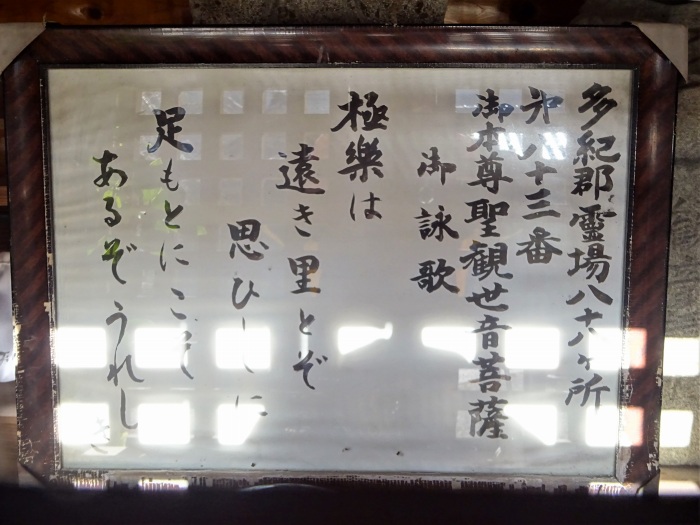 多紀郡霊場八十八ヶ所
第八十三番
御本尊聖観世音菩薩
御詠歌
極樂は
遠き里とぞ
思ひしに
足もとにこそ
あるぞうれしき